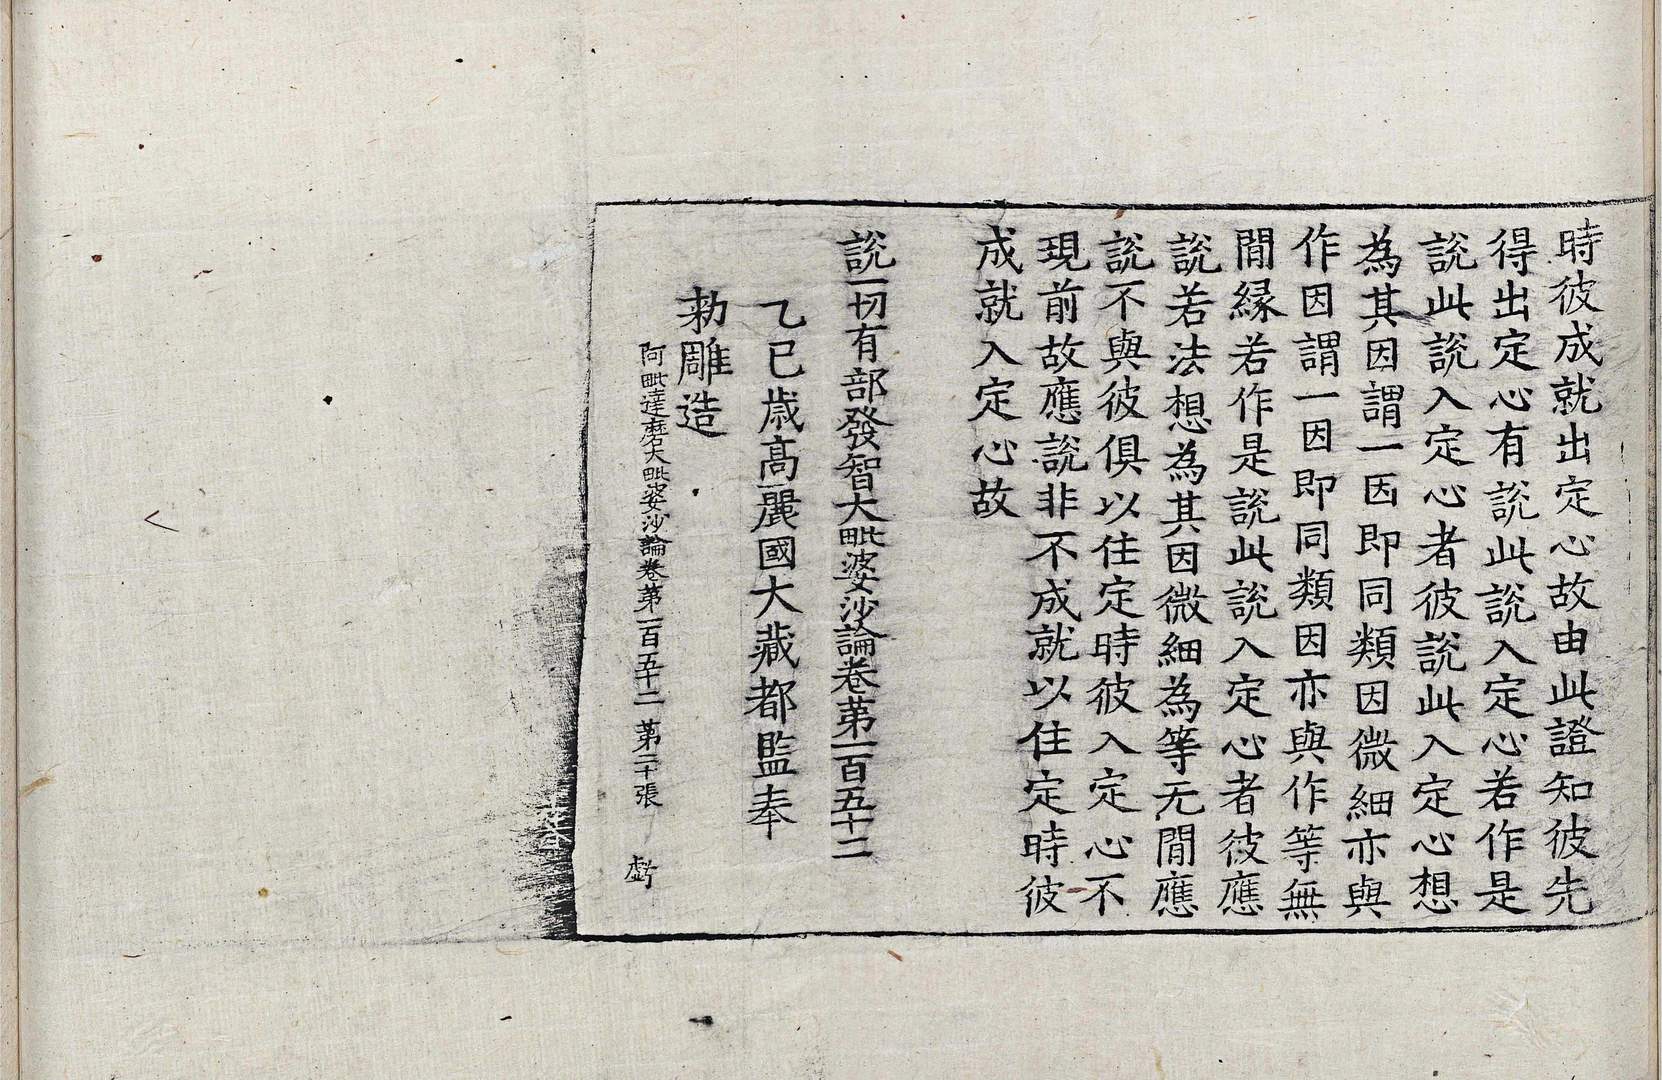 時彼成就出定心故由此證知彼先
得出定心有說此說入定心若作是
說此說入定心者彼說此入定心想
為其因謂一因即同類因微細亦與
作因謂一因即同類因亦與作等無
間緣若作是說此說入定心者彼應
說若法想為其因微細為等无間應
說不與彼俱以住定時彼入定心不
現前故應說非不成就以住定時彼
成就入定心故
說一切有部發智大毗婆沙論卷第一百五十二
乙巳歲高麗國大藏都監奉
勅雕造
阿毗達磨大毗婆沙論卷第一百五十二 第二十張 虧